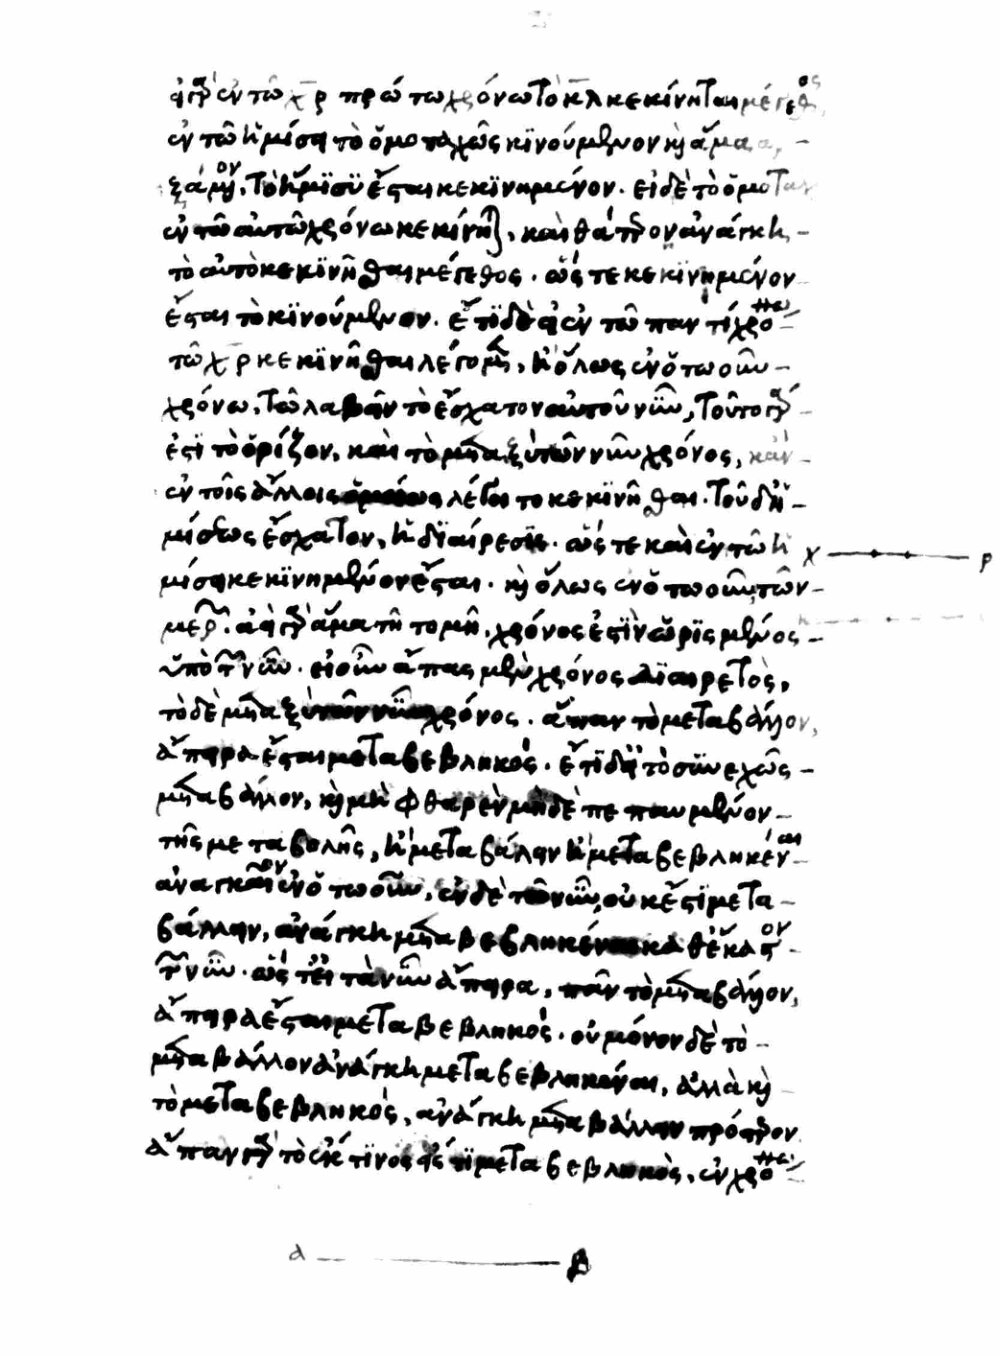 εἰ γὰρ ἐν τῷ χρ πρώτω χρόνω τὸ κλ κεκίνηται μέγεθος
ἐν τῶ ἡμίσει τὸ ὁμοταχῶς κινούμενον καὶ ἅμα
ξάμενον, τὸ ἥμισυ ἔσται κεκινημένον. εἰ δὲ τὸ ὁμοτα
ἐν τῶ αὐτῶ χρόνω κεκίνηται, καὶ θάτερον ἀνάγκη
τὸ αὐτὸ κεκινῆσθαι μέγεθος. ὥστε κεκινημένον
ἔσται τὸ κινούμενον. ἔτι δὲ εἰ ἐν τῶ παντὶ χρόνω
τῶ χρ κεκινῆσθαι λέγομεν, ἢ ὅλως ἐν ὅτω οὖν
χρόνω, τῶ λαβεῖν τὸ ἔσχατον αὐτοῦ νῦν, τοῦτο γάρ
ἐστι τὸ ὁρίζον, καὶ τὸ μεταξὺ τῶν νῦν χρόνος, κἂν
ἐν τοῖς ἄλλοις ὁμοίως λέγοιτο κεκινῆσθαι. τοῦ δ' ἡ
μίσεως ἔσχατον, ἡ διαίρεσις. ὥστε καὶ ἐν τῶ ἡ
μίσει κεκινημένον ἔσται. καὶ ὅλως ἐν ὅτω οὖν τῶν
μερῶν. ἀεὶ γὰρ ἅμα τῆ τομῆ, χρόνος ἐστὶν ὡρισμένος
ὑπὸ τῶν νῦν. εἰ οὖν ἅπας μὲν χρόνος διαιρετὸς,
τὸ δὲ μεταξὺ τῶν νῦν χρόνος. ἅπαν τὸ μεταβάλλον,
ἄπειρα ἔσται μεταβεβληκός. ἔτι δ' εἰ τὸ συνεχῶς
μεταβάλλον, καὶ μὴ φθαρὲν μηδὲ πεπαυμένον
τῆς μεταβολῆς, ἢ μεταβάλλειν ἢ μεταβεβληκέναι
ἀναγκαῖον ἐν ὅτω οὖν, ἐν δὲ τῶ νῦν, οὐκ ἔστι μετα
βάλλειν, ἀνάγκη μεταβεβληκέναι καθ' ἕκαστον
τῶν νῦν. ὥστ' εἰ τὰ νῦν ἄπειρα, πᾶν τὸ μεταβάλλον,
ἄπειρα ἔσται μεταβεβληκός. οὐ μόνον δὲ τὸ
μεταβάλλον ἀνάγκη μεταβεβληκέναι, ἀλλὰ καὶ
τὸ μεταβεβληκὸς, ἀνάγκη μεταβάλλειν πρότερον
ἅπαν γὰρ τὸ ἔκ τινος εἴς τι μεταβεβληκὸς, ἐν χρόνω
χ ρ
α β